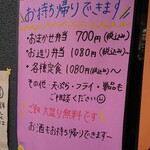 お持ち帰りできます
・おまかせ弁当 700円(税込み)
・お造り弁当 1080円(税込み)
・各種定食 1080円(税込み)～
その他 天ぷら・フライ・単品も
ご相談ください
ごはん大盛り無料です
お酒もお持ち帰りできます～